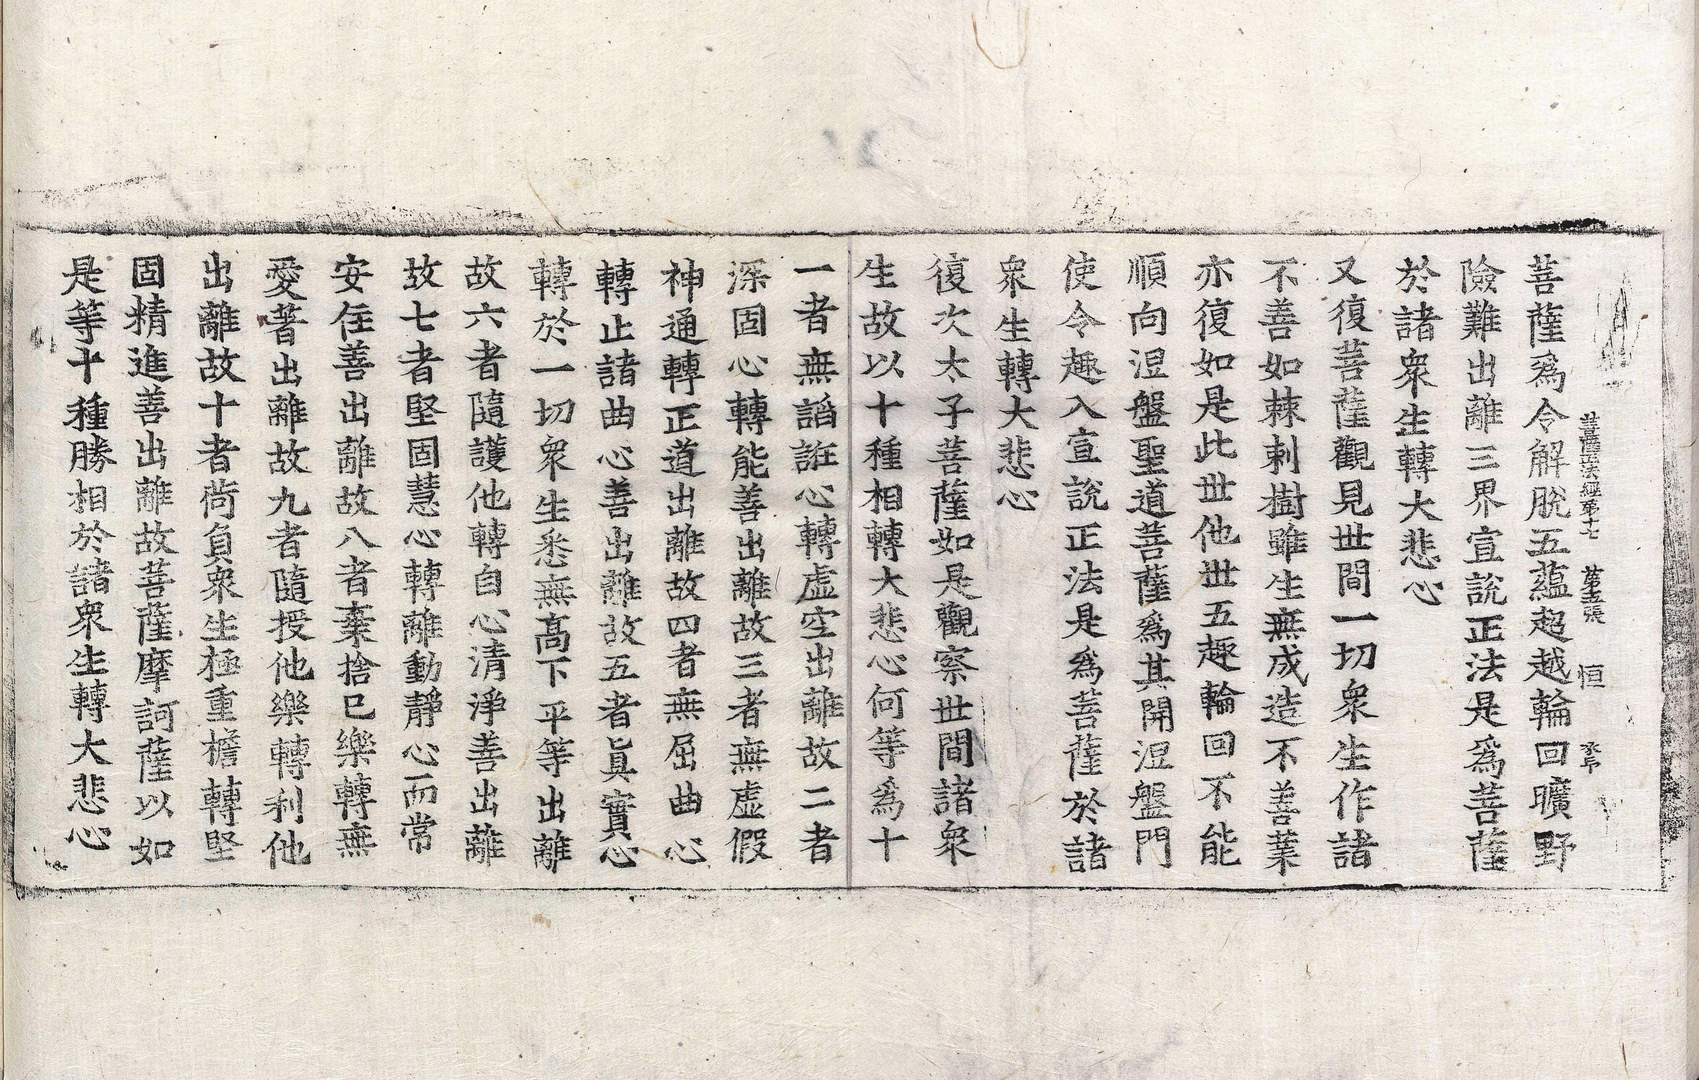 菩薩正法經第十七 第五張 恒
菩薩爲令解脫五蘊超越輪回曠野
險難出離三界宣說正法是爲菩薩
於諸衆生轉大悲心
又復菩薩觀見世間一切衆生作諸
不善如棘刺樹雖生無成造不善業
亦復如是此世他世五趣輪回不能
順向涅盤聖道菩薩爲其開涅盤門
使令趣入宣說正法是爲菩薩於諸
衆生轉大悲心
復次太子菩薩如是觀察世間諸衆
生故以十種相轉大悲心何等爲十
一者無諂誑心轉虛空出離故二者
深固心轉能善出離故三者無虛假
神通轉正道出離故四者無屈曲心
轉止諸曲心善出離故五者眞實心
轉於一切衆生悉無高下平等出離
故六者隨護他轉自心清淨善出離
故七者堅固慧心轉離動靜心而常
安住善出離故八者棄捨己樂轉無
愛著出離故九者隨授他樂轉利他
出離故十者荷負衆生極重擔轉堅
固精進善出離故菩薩摩訶薩以如
是等十種勝相於諸衆生轉大悲心